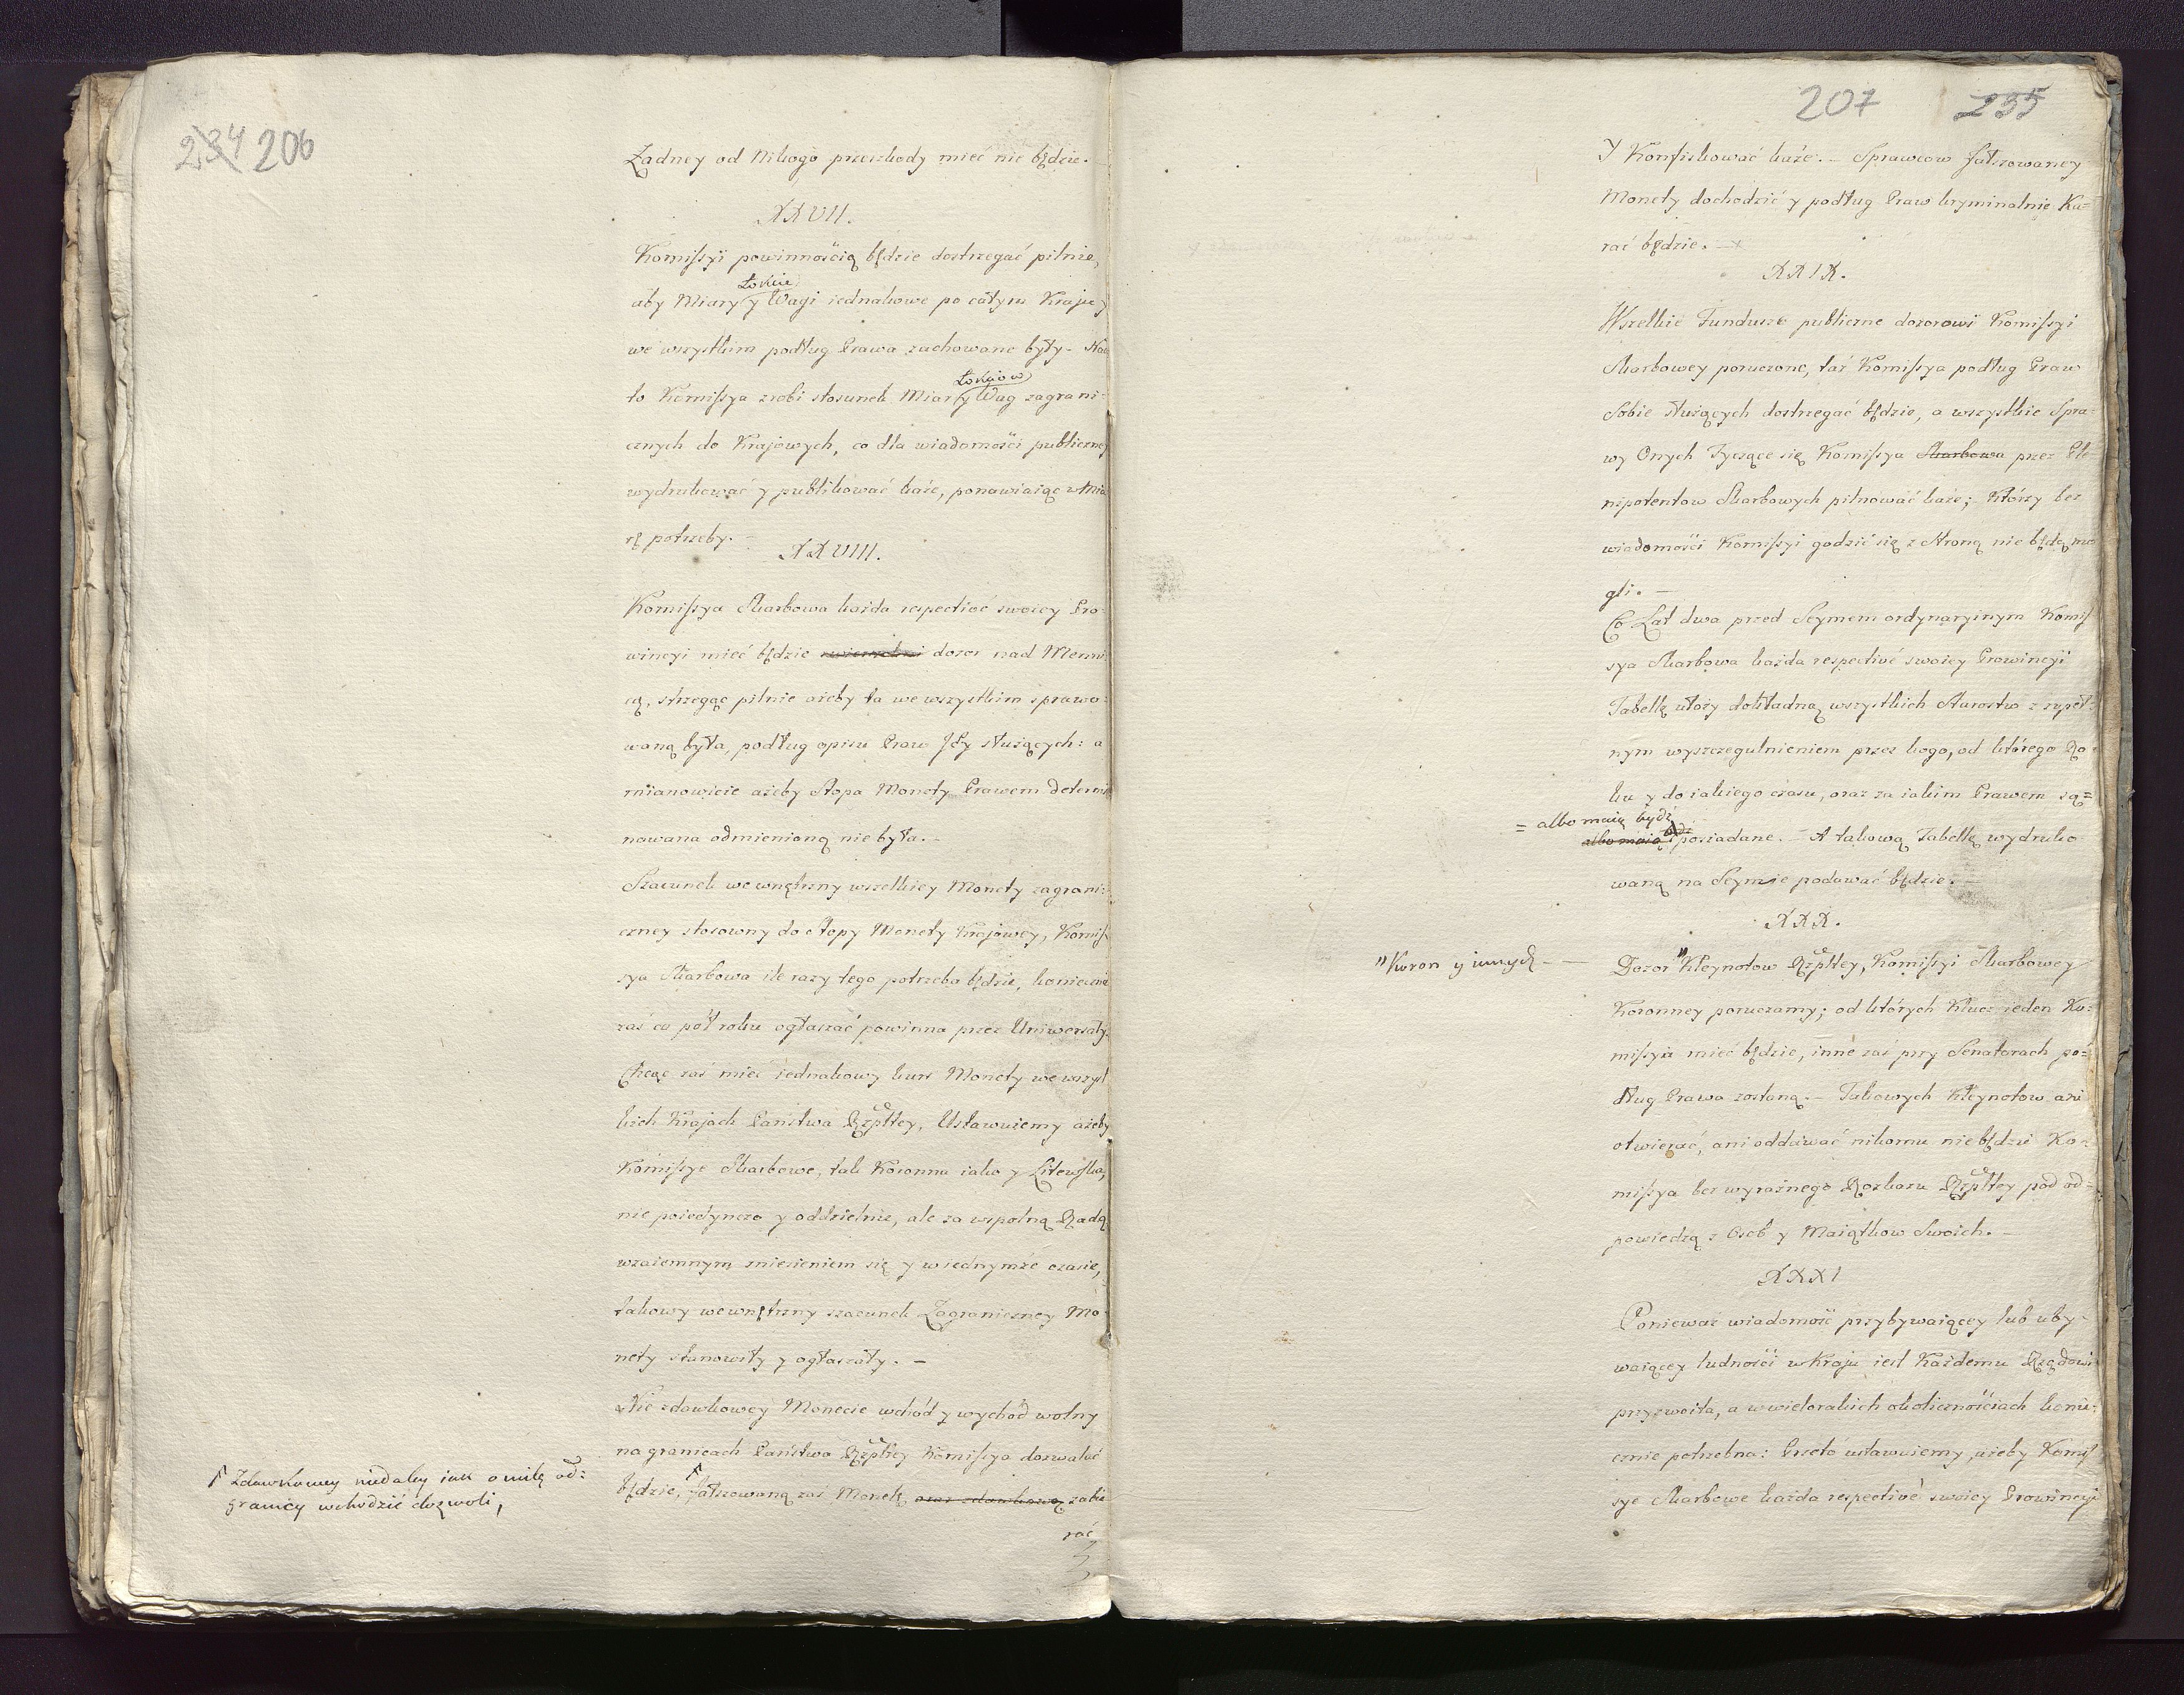 234 206
Żadney od Nikogo przeszkody mieć nie będzie.
XXVII.
Komissyi powinnością będzie dostrzegać pilnie,
Łokcie
aby Miary y Wagi iednakowe po całym Kraju y
we wszystkim podług Prawa zachowane były - Nad
Łokciow
to Komissya zrobi stosunek Miar y Wag zagrani=
cznych do Krajowych, co dla wiadomości publiczney
wydrukować y publikować każe, ponawiaiąc w Mia
rę potrzeby. -
XXVIII.
Komissya Skarbowa każda respective swoiey Pro=
wincyi mieć będzie zwierzchni dozor nad Menni
cą, strzegąc pilnie ażeby ta we wszystkim sprawo=
waną była, podług opisu Praw Jey służących: a
mianowicie ażeby Stopa Monety Prawem determi
nowana odmienioną nie była. -
Szacunek wewnętrzny wszelkiey Monety zagrani=
czney stosowny do Stopy Monety Krajowey, Komis
sya Skarbowa ile razy tego potrzeba będzie, koniecznie
zaś co pół roku ogłaszać powinna przez Uniwersały.
Chcąc zaś mieć iednakowy kurs Monety we wszyst
kich Krajach Państwa Rzpltey, Ustawuiemy ażeby
Komissye Skarbowe, tak Koronna iako y Litewska,
nie poiedynczo y oddzielnie, ale za wspolną Radą
wzaiemnym zniesieniem się y w iednymże czasie,
takowy wewnętrzny szacunek Zagraniczney Mo=
nety stanowiły y ogłaszały. -
Nie zdawkowey Monecie wchód y wychód wolny
na granicach Państwa Rzpltey Komissya dozwalać
będzie, fałszowaną zaś Monetę oraz zdawkową zabie
rać
Zdawkowey niedaley iak o milę od=
granicy wchodzić dozwoli,
207 235
Y Konfiskować każe. - Sprawcow fałszowaney
Monety dochodzić y podług Praw kryminalnie Ka=
rać będzie. -x
XXIX.
Wszelkie Fundusze publiczne dozorowi Komissyi
Skarbowey poruczone, taż Komissya podług Praw
Sobie służących dostrzegać będzie, a wszystkie Spra=
wy Onych Tyczące się Komissya Skarbowa przez Ple
nipotentow Skarbowych pilnować każe; Którzy bez
wiadomości Komissyi godzić się z Stroną nie będą mo
gli. -
Co Lat dwa przed Seymem ordynaryinym Komis
sya Skarbowa każda respective swoiey Prowincyi
Tabellę ułoży dokładną wszystkich Starostw z zupeł=
nym wyszczegulnieniem przez kogo, od którego Ro=
ku y do iakiego czasu, oraz za iakim Prawem są=
= albo maią bydź
albo maią bydź posiadane. - A takową Tabellę wydruko
waną na Seymie podawać będzie. -
XXX.
"Koron y innych - -
Dozor "Kleynotow Rzpltey, Komissyi Skarbowey
Koronney poruczamy; od których Klucz ieden Ko=
missya mieć będzie, inne zaś przy Senatorach po=
dług Prawa zostaną. - Takowych Kleynotow ani
otwierać, ani oddawać nikomu nie będzie Ko=
missya bez wyraźnego Rozkazu Rzpltey pod od=
powiedzą z Osob y Maiątkow Swoich. -
XXXI
Ponieważ wiadomość przybywaiącey lub uby=
waiącey ludności w Kraju iest Każdemu Rządowi
przyzwoita, a w wielorakich okolicznościach koni=
ecznie potrzebna: Przeto ustawuiemy, ażeby Komis
sye Skarbowe każda respective swoiey Prowincyi